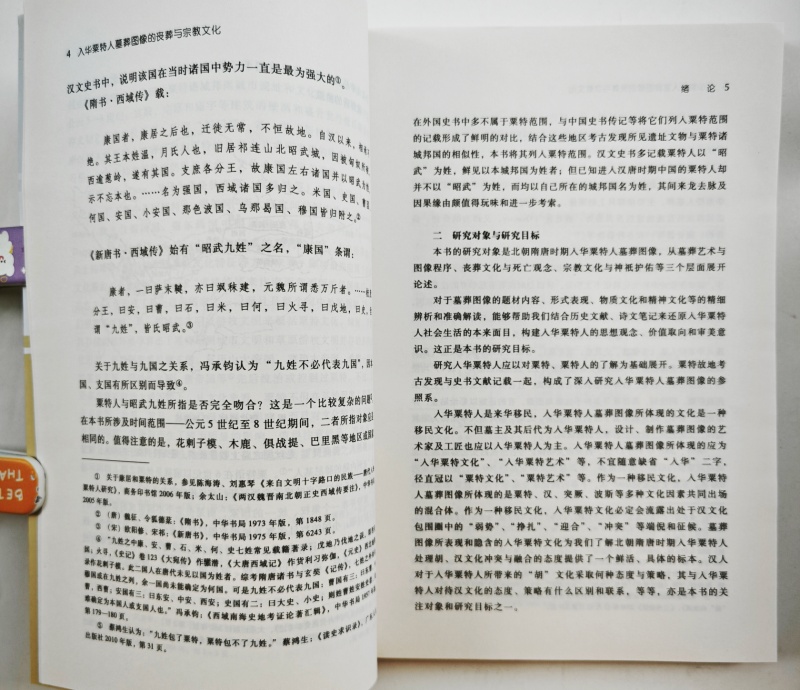 4 入华粟特人墓葬图像的丧葬与宗教文化
汉文史书中，说明该国在当时诸国中势力一直是最为强大的①。
《隋书·西域传》载：
康国者，康居之后也，迁徙无常，不恒故地。自汉以来，相
绝。其王本姓温，月氏人也，旧居祁连山北昭武城，因被匈奴
西逾葱岭，遂有其国。支庶各分王，故康国左右诸国并以昭武
示不忘本也。……名为强国，西域诸国多归之。米国、史国、曹
何国、安国、小安国、那色波国、乌那曷国、穆国皆归附之。②
《新唐书·西域传》始有“昭武九姓”之名，“康国”条谓：
康者，一曰萨末鞬，亦曰飒秣建，元魏所谓悉万斤者。
分王，曰安，曰曹，曰石，曰米，曰何，曰火寻，曰戊地，曰史，
谓“九姓”，皆氏昭武。③
关于九姓与九国之关系，冯承钧认为“九姓不必代表九国”，因
国、支国有所区别而导致④。
粟特人与昭武九姓所指是否完全吻合？这是一个比较复杂的问题
在本书所涉及时间范围——公元5世纪至8世纪期间，二者所指对象
相同的。值得注意的是，花剌子模、木鹿、俱战提、巴里黑等地区或国
① 关于康居和粟特的关系，参见陈海涛、刘惠琴《来自文明十字路口的民族——唐代入
粟特人研究》，商务印书馆2006年版；余太山：《两汉魏晋南北朝正史西域传要注》，中华书
2005年版。
② （唐）魏征、令狐德棻：《隋书》，中华书局1973年版，第1848页。
③ （宋）欧阳修、宋祁：《新唐书》，中华书局1975年版，第6243页。
④ “九姓之中康、安、曹、石、米、何、史七姓常见载籍著录；戊地乃伐地之误，
国；火寻，《史记》卷123《大宛传》作驩潜，《大唐西域记》作货利习弥伽，《元史》
录作花剌子模，此二国人在唐代未见以国为姓者。综考隋唐诸书与玄奘《记传》，七姓之外
国或在九姓之列，余一国尚未能确定为何国。可是九姓不必代表九国：曹国有三：曰东曹、
曹、西曹；安国有三：曰东安、中安、西安；史国有二：曰大史、小史；则
难确定为本国人或支国人也。”冯承钧：《西域南海史地考证论著汇辑》，中华书局
第179—180页。
⑤ 蔡鸿生认为：“九姓包了粟特，粟特包不了九姓。”蔡鸿生：《读史求识录》，广
出版社2010年版，第31页。
绪 论 5
在外国史书中多不属于粟特范围，与中国史书传记等将它们列入粟特范围
的记载形成了鲜明的对比，结合这些地区考古发现所见遗址文物与粟特诸
城邦国的相似性，本书将其列入粟特范围。汉文史书多记载粟特人以“昭
武”为姓，鲜见以本城邦国为姓者；但已知进入汉唐时期中国的粟特人却
并不以“昭武”为姓，而均以自己所在的城邦国名为姓，其间来龙去脉及
因果缘由颇值得玩味和进一步考索。
二 研究对象与研究目标
本书的研究对象是北朝隋唐时期入华粟特人墓葬图像，从墓葬艺术与
图像程序、丧葬文化与死亡观念、宗教文化与神祇护佑等三个层面展开
论述。
对于墓葬图像的题材内容、形式表现、物质文化和精神文化等的精细
辨析和准确解读，能够帮助我们结合历史文献、诗文笔记来还原入华粟特
人社会生活的本来面目，构建入华粟特人的思想观念、价值取向和审美意
识。这正是本书的研究目标。
研究入华粟特人应以对粟特、粟特人的了解为基础展开。粟特故地考
古发现与史书文献记载一起，构成了深入研究入华粟特人墓葬图像的参
照系。
入华粟特人是来华移民，入华粟特人墓葬图像所体现的文化是一种
移民文化。不但墓主及其后代为入华粟特人，设计、制作墓葬图像的艺
术家及工匠也应以入华粟特人为主。入华粟特人墓葬图像所体现的应为
“入华粟特文化”、“入华粟特艺术”等，不宜随意缺省“入华”二字，
径直冠以“粟特文化”、“粟特艺术”等。作为一种移民文化，入华粟特
人墓葬图像所体现的是粟特、汉、突厥、波斯等多种文化因素共同出场
的混合体。作为一种移民文化，入华粟特文化必定会流露出处于汉文化
包围圈中的“弱势”、“挣扎”、“迎合”、“冲突”等端倪和征候。墓葬图
像所表现和隐含的入华粟特文化为我们了解北朝隋唐时期入华粟特人
处理胡、汉文化冲突与融合的态度提供了一个鲜活、具体的标本。汉人
对于入华粟特人所带来的“胡”文化采取何种态度与策略，其与入华粟特
人对待汉文化的态度、策略有什么区别和联系，等等，亦是本书的关
注对象和研究目标之一。